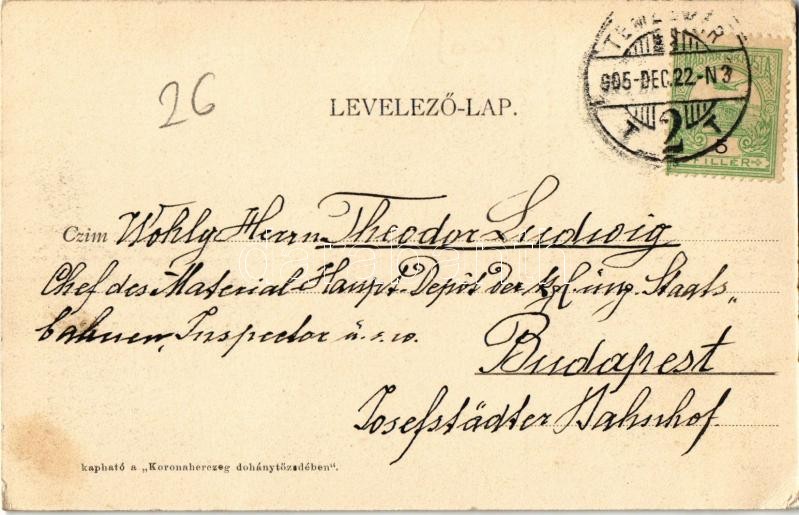 TEMESVÁR
905-DEC.22-N3
T 2 T
5
FILLÉR
26
LEVELEZŐ-LAP.
Czim Wohlg Herrn Theodor Ludwig
Chef des Material-Haupt-Depôt der kgl. ung. Staats„
bahnen, Inspector u.s.w.
Budapest
Josefstädter Bahnhof.
kapható a „Koronaherczeg dohánytőzsdében“.